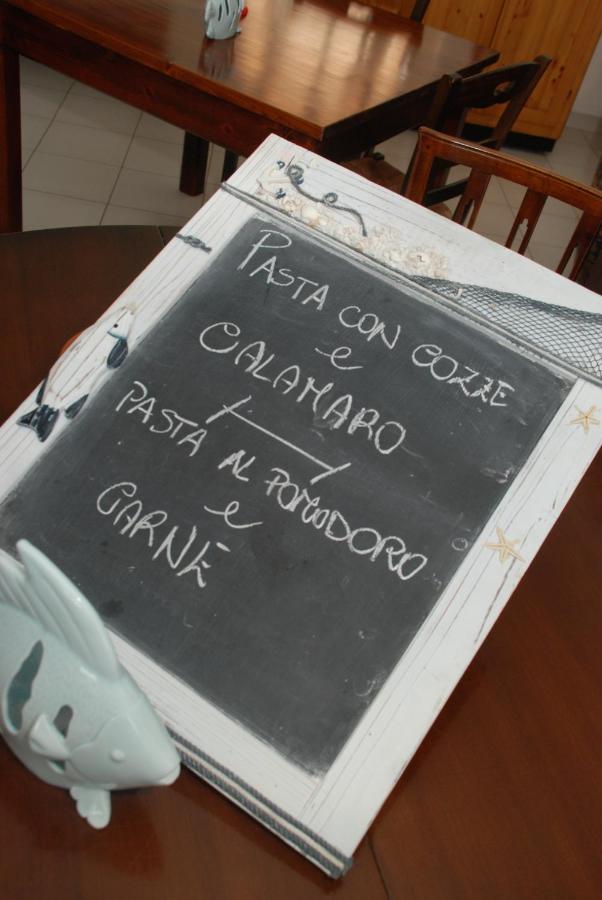 PASTA CON COZZE
e
CALAMARO
PASTA AL POMODORO
e
CARNE